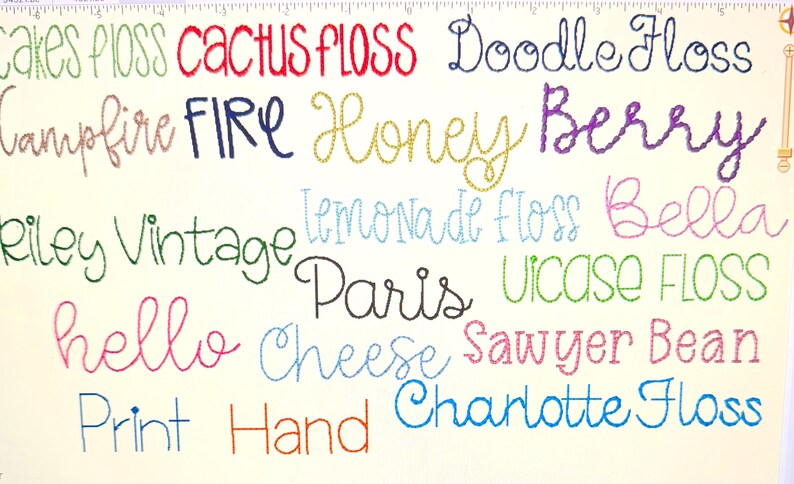 cakes floss cactus floss Doodle Floss
Campfire FIRE Honey Berry
Riley Vintage lemonade floss Bella
Paris UICASE FLOSS
hello Cheese Sawyer Bean
Print Hand Charlotte Floss